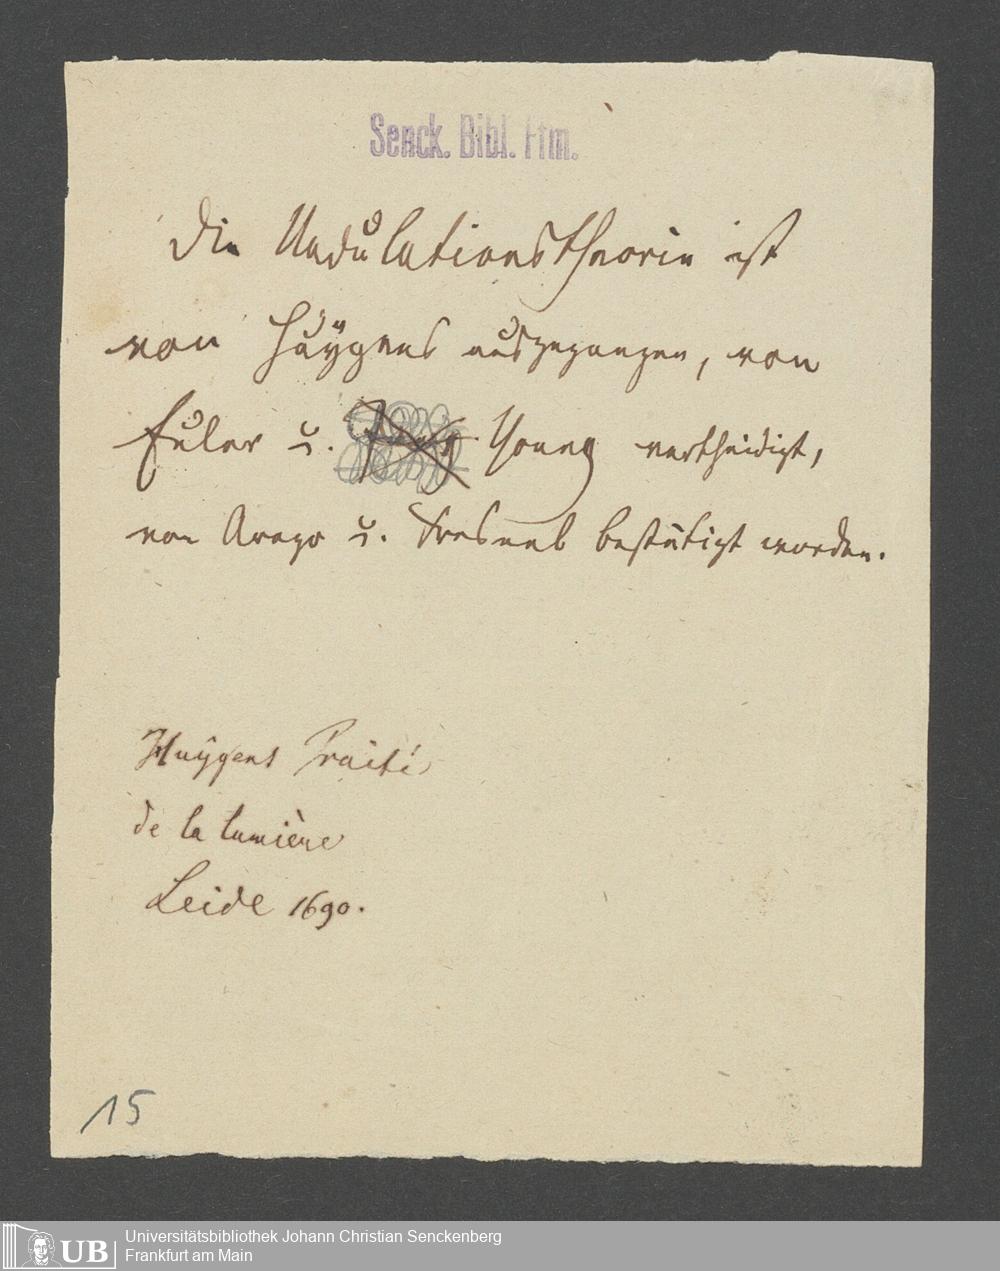 Senck. Bibl. Ffm.
Die Undulationstheorie ist
von Huÿgens ausgegangen, von
Euler u. Young vertheidigt,
von Arago u. Fresnel bestätigt worden.
Huÿgens Traité
de la lumière
Leide 1690.
15
UB
Universitätsbibliothek Johann Christian Senckenberg
Frankfurt am Main